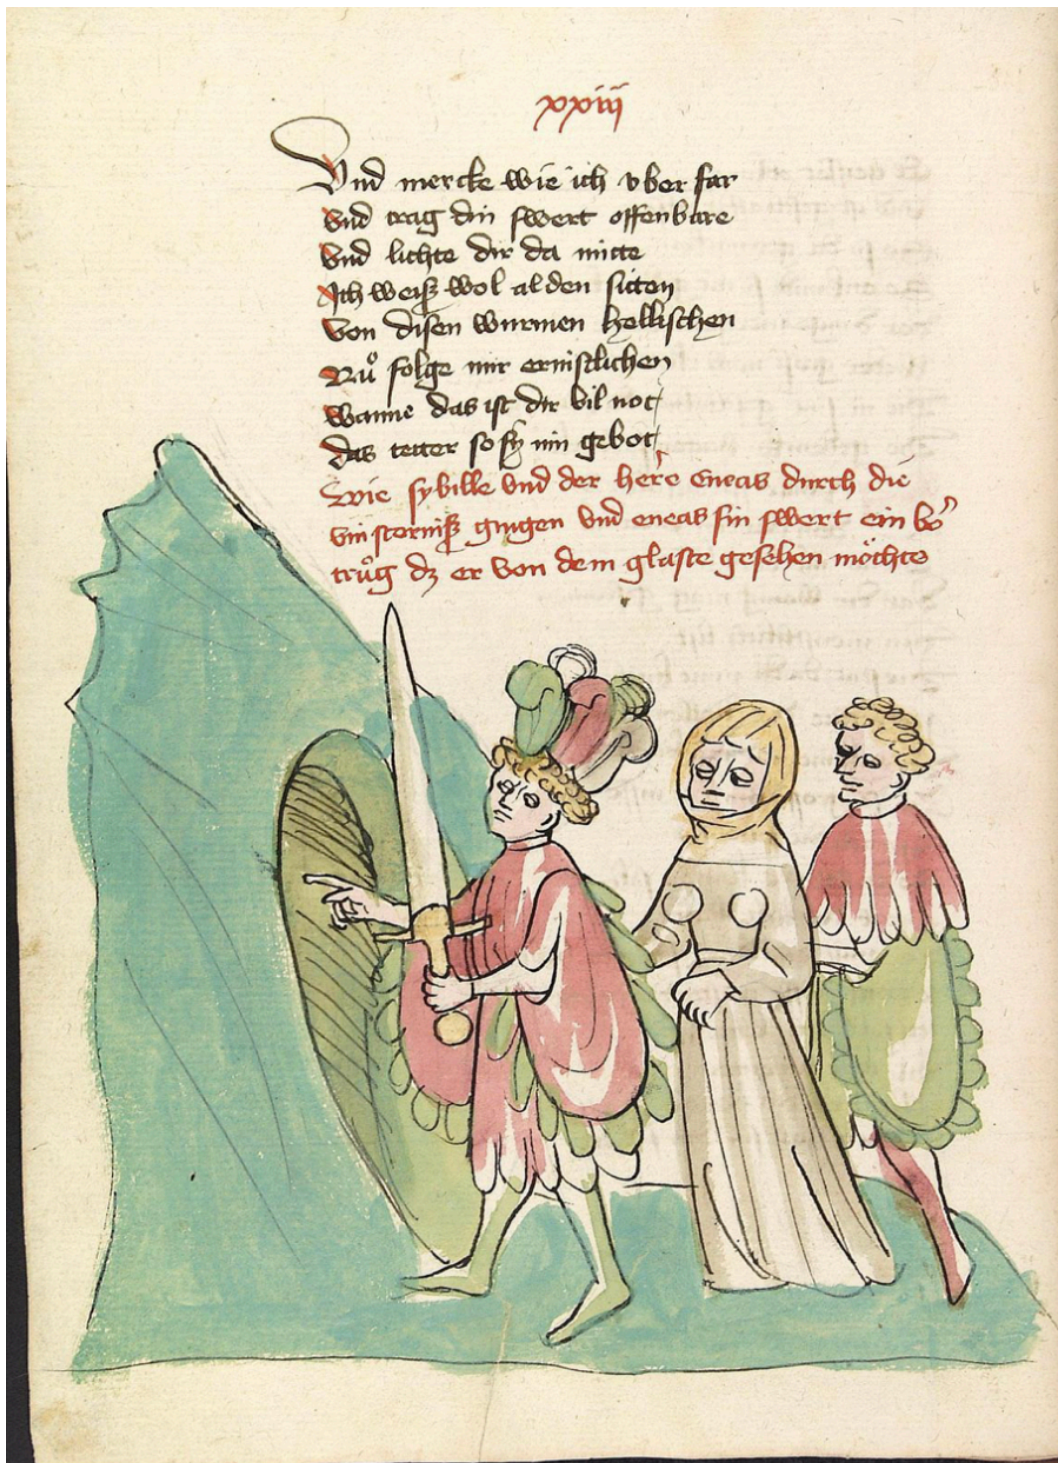 xxiiij
Vnd mercke wie ich vber far
Vnd trag din swert offenbare
Vnd lichte dir da mitte
Ich weiß wol al den sitten
Von disen wurmen hellischen
Nuͦ folge mir ernistlichen
Wanne das ist dir vil not
das tetter so sÿ min gebot
Wie sybille vnd der here Eneas durch die
vinsterniß gingen vnd eneas sin swert ein bo
truͦg dz er von dem glaste gesehen möchte